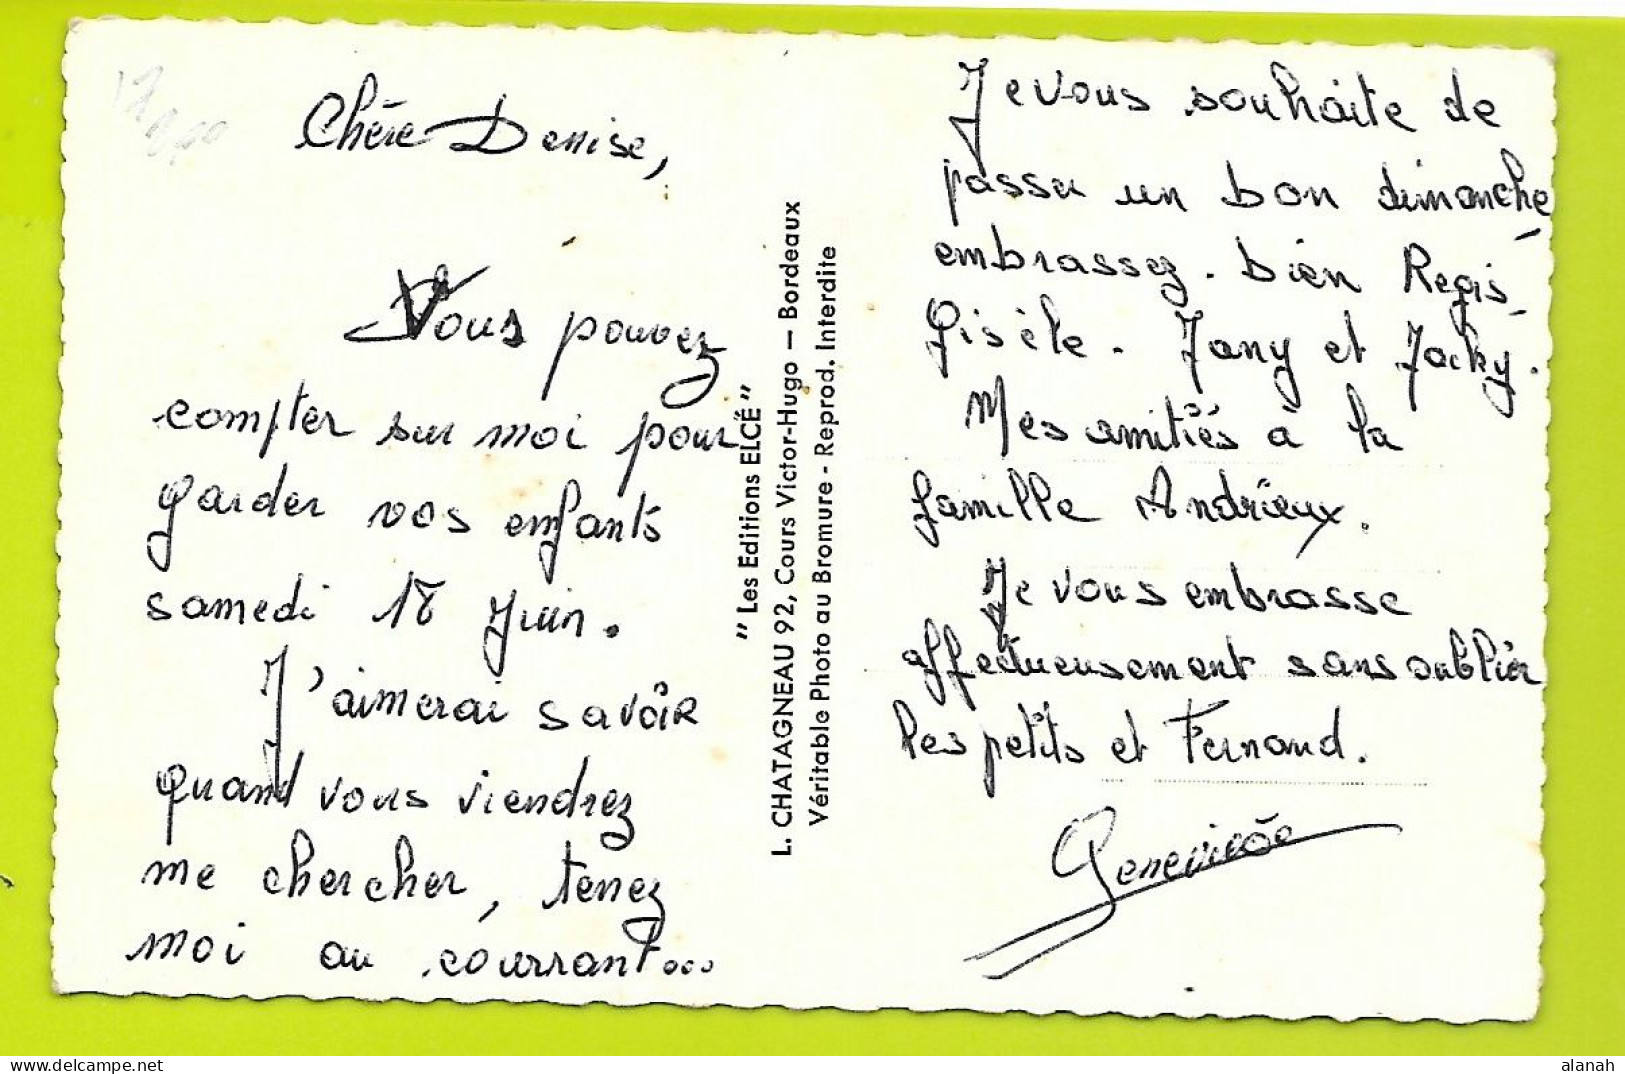 Chère Denise,
Vous pouvez
compter sur moi pour
garder vos enfants
samedi 18 Juin.
J'aimerai savoir
quand vous viendrez
me chercher, tenez
moi au courrant...
"Les Editions ELCÉ"
L. CHATAGNEAU 92, Cours Victor-Hugo — Bordeaux
Véritable Photo au Bromure - Reprod. Interdite
Je vous souhaite de
passer un bon dimanche
embrassez. bien Regis -
Gisèle. Jany et Jacky.
Mes amitiés à la
famille Andrieux.
Je vous embrasse
affectueusement sans oublier
les petits et Fernand.
Geneviève
alanah